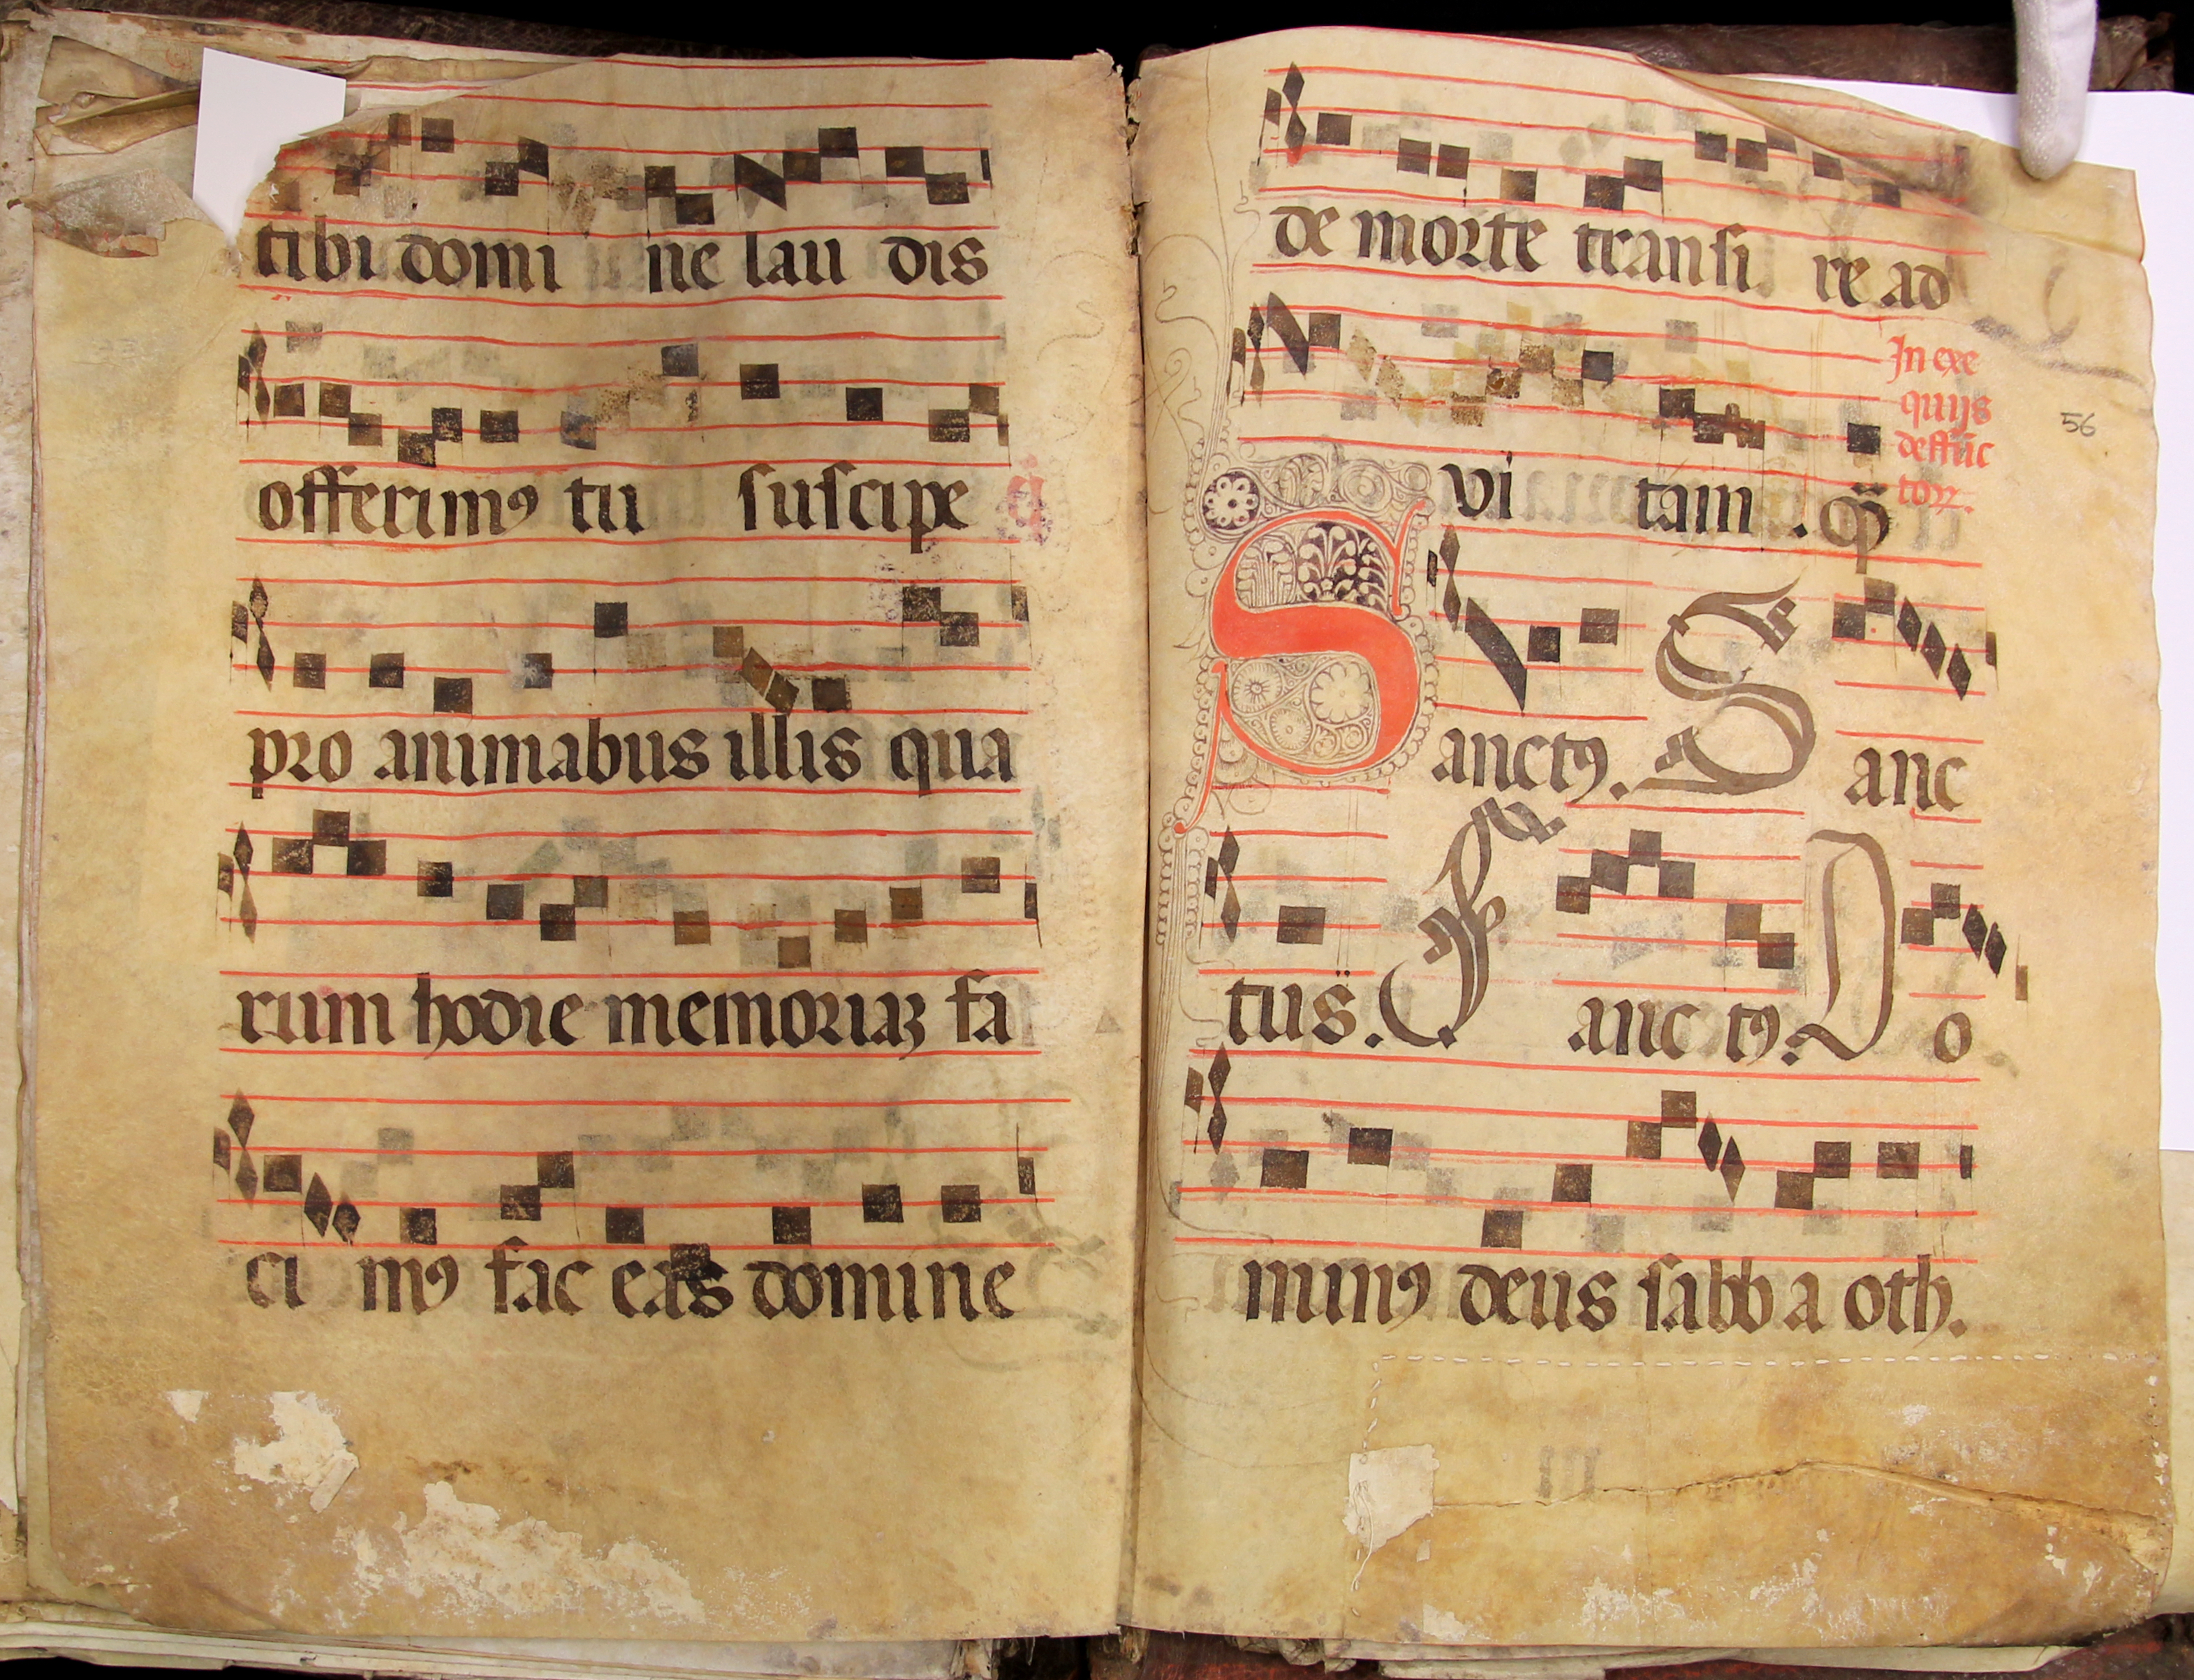 tibi domi ne lau dis
offerimꝰ tu suscipe
pro animabus illis qua
rum hodie memoriaꝫ fa
ci mꝰ fac eas domine
de morte transi re ad
In exe
quijs
deffūc
toꝝ.
56
vi tam . qͣ̄
Sanctꝰ. Sanc
tus. Sanc tꝰ. Do
minꝰ deus sabb a oth.